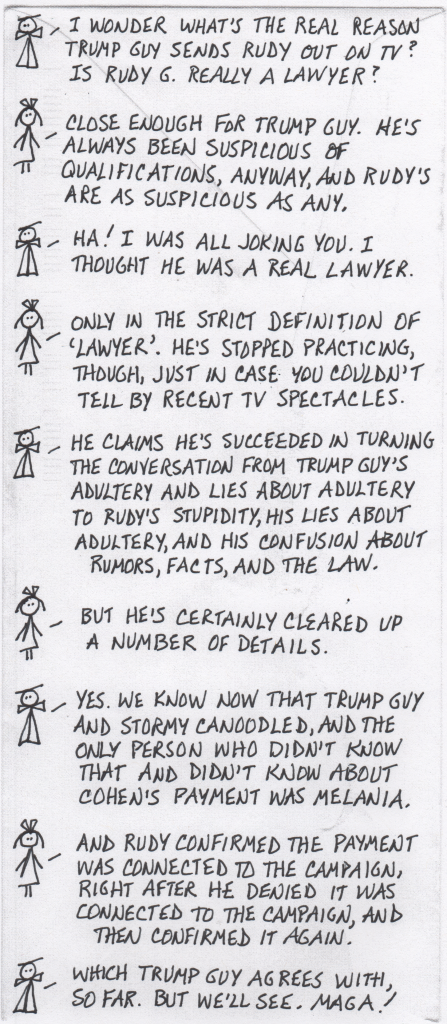 I WONDER WHAT'S THE REAL REASON
TRUMP GUY SENDS RUDY OUT ON TV?
IS RUDY G. REALLY A LAWYER?
CLOSE ENOUGH FOR TRUMP GUY. HE'S
ALWAYS BEEN SUSPICIOUS OF
QUALIFICATIONS, ANYWAY, AND RUDY'S
ARE AS SUSPICIOUS AS ANY.
HA! I WAS ALL JOKING YOU. I
THOUGHT HE WAS A REAL LAWYER.
ONLY IN THE STRICT DEFINITION OF
'LAWYER'. HE'S STOPPED PRACTICING,
THOUGH, JUST IN CASE YOU COULDN'T
TELL BY RECENT TV SPECTACLES.
HE CLAIMS HE'S SUCCEEDED IN TURNING
THE CONVERSATION FROM TRUMP GUY'S
ADULTERY AND LIES ABOUT ADULTERY
TO RUDY'S STUPIDITY, HIS LIES ABOUT
ADULTERY, AND HIS CONFUSION ABOUT
RUMORS, FACTS, AND THE LAW.
BUT HE'S CERTAINLY CLEARED UP
A NUMBER OF DETAILS.
YES. WE KNOW NOW THAT TRUMP GUY
AND STORMY CANOODLED, AND THE
ONLY PERSON WHO DIDN'T KNOW
THAT AND DIDN'T KNOW ABOUT
COHEN'S PAYMENT WAS MELANIA.
AND RUDY CONFIRMED THE PAYMENT
WAS CONNECTED TO THE CAMPAIGN,
RIGHT AFTER HE DENIED IT WAS
CONNECTED TO THE CAMPAIGN, AND
THEN CONFIRMED IT AGAIN.
WHICH TRUMP GUY AGREES WITH,
SO FAR. BUT WE'LL SEE. MAGA!